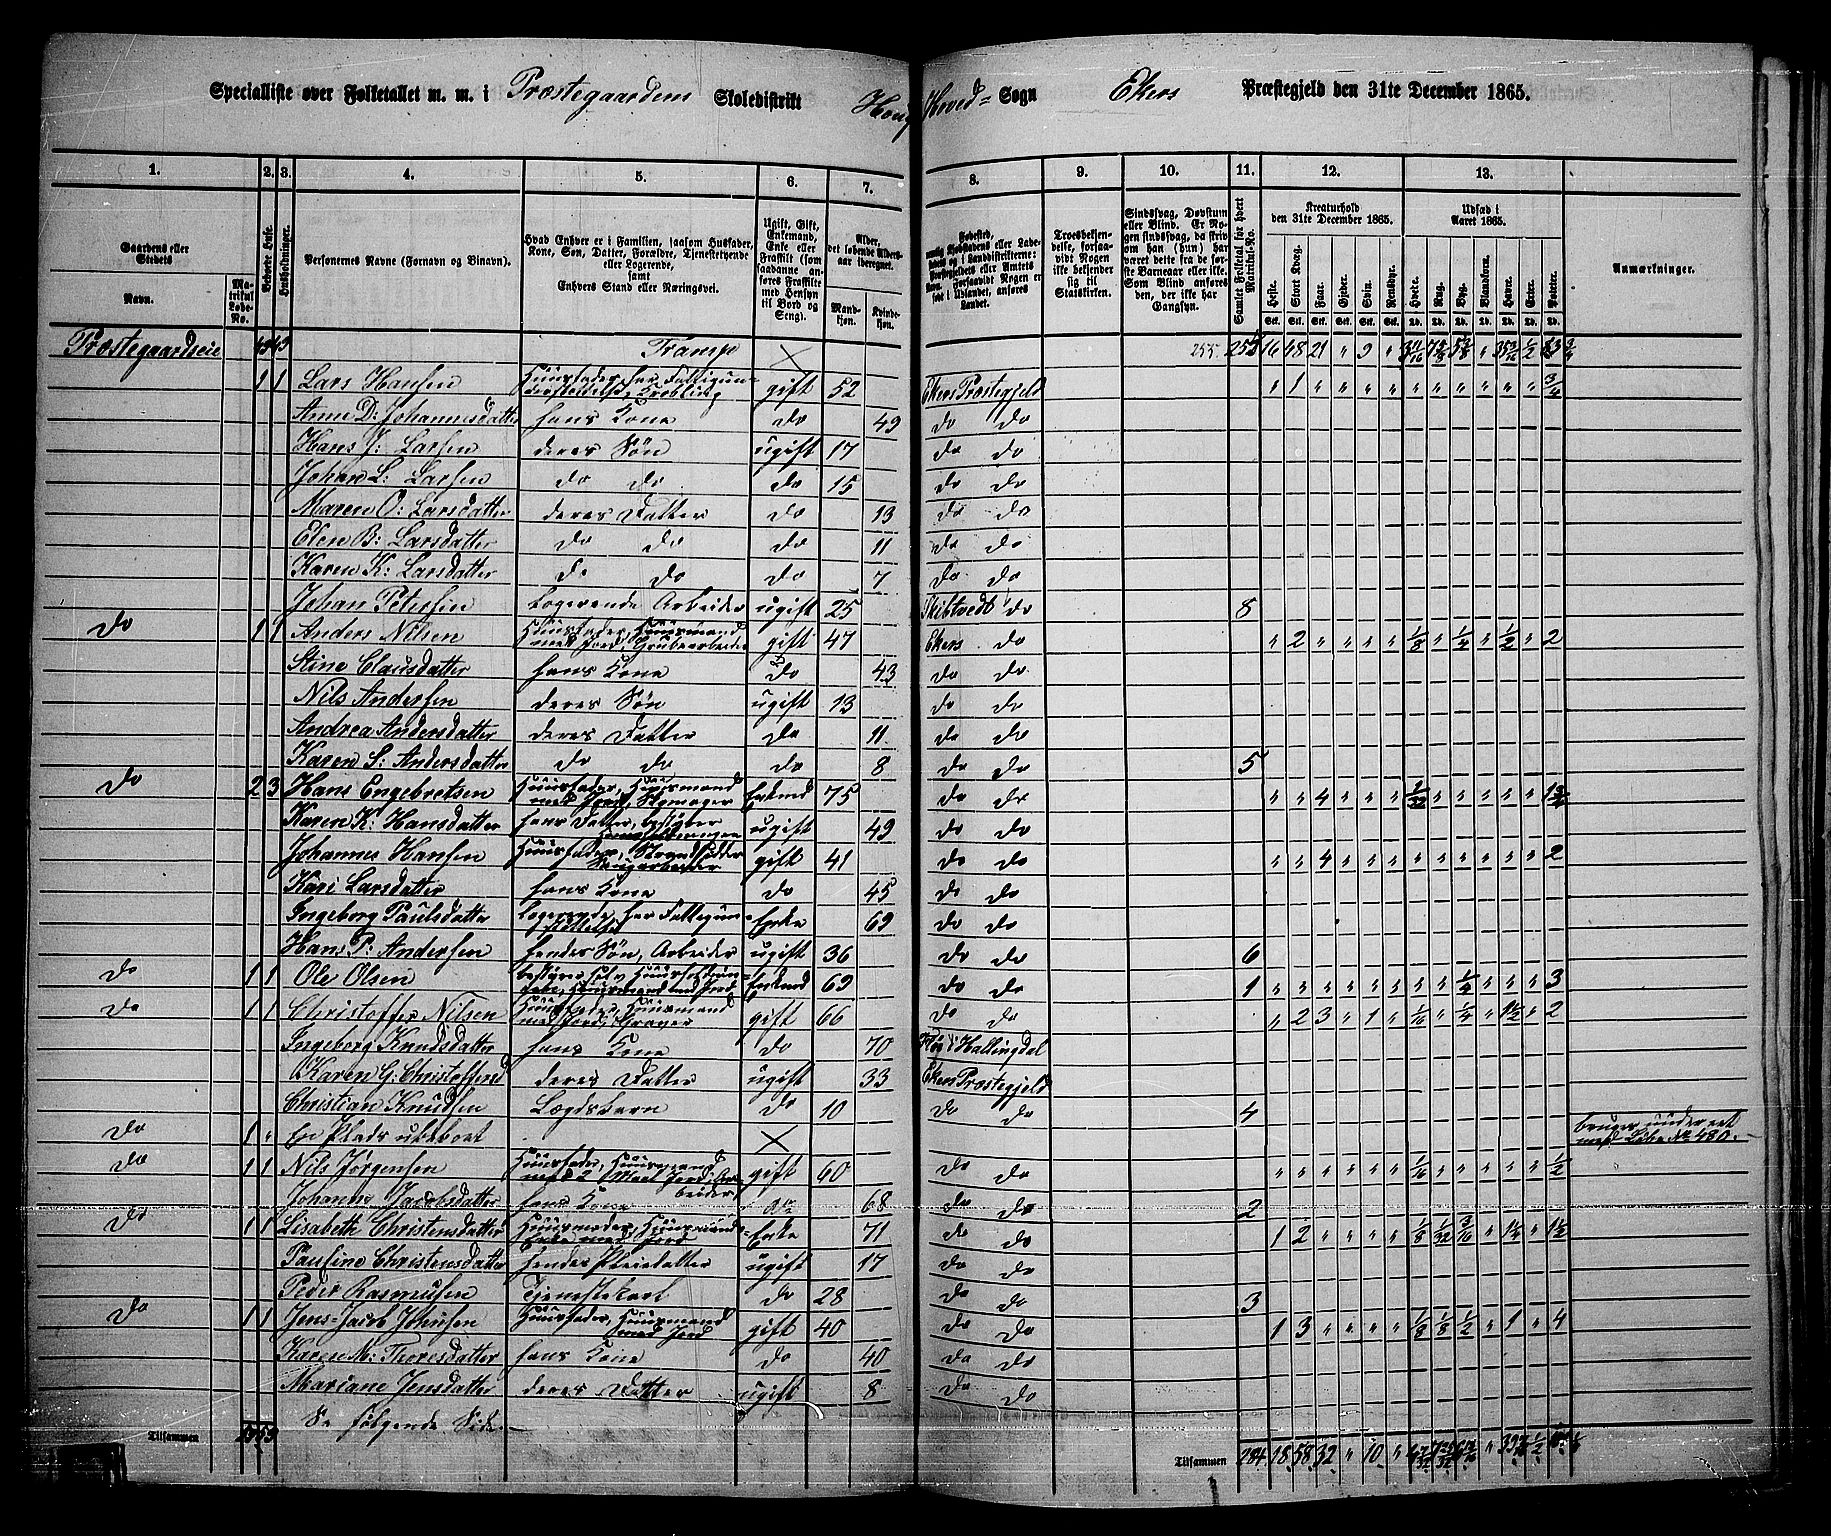 Specialliste over Folketallet m. m. i Præstegaardens Skoledistrikt Houg Hoved= Sogn Ekers Præstegjeld den 31te December 1865.
1. 2. 3. 4. 5. 6. 7. 8. 9. 10. 11. 12. 13.
Gaardens eller Stedets Navn.
Matrikul Løbe-No.
Beboede Huse.
Husholdninger.
Personernes Navne (Fornavn og Binavn).
Hvad Enhver er i Familien, saasom Husfader, Kone, Søn, Datter, Forældre, Tjenestetyende eller Logerende, samt Enhvers Stand eller Næringsvei.
Ugift, Gift, Enkemand, Enke eller Fraskilt (som saadanne anføres Fraskilte med Hensyn til Bord og Seng).
Alder, det løbende Aldersaar iberegnet.
Mandkjøn. Kvindekjøn.
Troesbekjendelse, forsaavidt Nogen ikke bekjender sig til Statskirken.
Sindssvag, Døvstum eller Blind. Er Nogen sindssvag, da skrives om han (hun) har været dette fra de første Barneaar eller ikke. Som Blind anføres den, der ikke har Gangsyn.
Samlet Folketal for hvert Matrikul-No.
Kreaturhold den 31te December 1865.
Heste. Stort Kvæg. Faar. Gjeder. Svin. Rensdyr.
Udsæd i Aaret 1865.
Hvede. Rug. Byg. Blandkorn. Havre. Erter. Poteter.
Anmærkninger.
Præstegaardseie 43 43 Transp 255 255 16 48 21 " 9 "
1 1 Lars Hansen gift 52 Ekers Præstegjeld " 1 " " " " " " " " " " 3/4
Anne D: Johannesdatter hans Kone do 49 do do
Hans J: Larsen deres Søn ugift 17 do do
Johan L: Larsen do do do 15 do do
Maren O: Larsdatter deres Datter do 13 do do
Elen B: Larsdatter do do do 11 do do
Karen K: Larsdatter do do do 7 do do
Johan Petersen Logerende Arbeider ugift 25 Skibtvedt do 8
do 1 1 Anders Nilsen Huusfader, Huusmand med Jord, Grubearbeider gift 47 Ekers do " 2 " " " " 1/8 " 1/4 " 1/2 " 2
Stine Clausdatter hans Kone do 43 do do
Nils Andersen deres Søn ugift 13 do do
Andrea Andersdatter deres Datter do 11 do do
Karen S: Andersdatter do do do 8 do do 5
do 2 3 Hans Engebretsen Huusfader, Huusmand med Jord, Skomager Enkmd 75 do do " " 4 " " " 1/32 " " " " "
Karen K: Hansdatter hans Datter, bestyrer ugift 49 do do
Johannes Hansen Huusfader, gift 41 do do " " 4 " " " " " " " " " 2
Kari Larsdatter hans Kone do 45 do do
Ingeborg Paulsdatter Logerende, har Fattigunderstøttelse Enke 69 do do
Hans P: Andersen hendes Søn, Arbeider ugift 36 do do 6
do 1 1 Ole Olsen Enkmd 69 do do 1 " " " " " " " " 1/4 " " " 3
do 1 1 Christoffer Nilsen Huusfader, Huusmand med Jord, Graver gift 66 do do " 2 3 " 1 " 1/16 " 1/4 " 1 1/2 " 2
Ingeborg Knudsdatter hans Kone do 70 i Hallingdal
Karen G: Christoffersd deres Datter ugift 33 Ekers Præstegjeld
Christian Knudsen Lægdsbarn do 10 do do 4
do 1 " En Plads ubeboet bruges under et med Løbe No 480.
do 1 1 Nils Jørgensen Huusfader, Huusmand med 2 Maal Jord, Arbeider gift 60 do do " " " " " " 1/16 " " " " " 1/2
Johanne Jacobsdatter hans Kone do 68 do do 2
do 1 1 Lisabeth Christensdatter Huusmoder, Huusmands Enke med Jord Enke 71 do do 1 2 " " " " 1/8 1/32 3/16 " 1 1/4 " 1 1/2
Pauline Christensdatter hendes Pleiedatter ugift 17 do do
Peder Rasmusen Tjenestekarl do 28 do do 3
do 1 1 Jens-Jacob Johnsen Huusfader, Huusmand med Jord gift 40 do do 1 3 " " " " 1/8 1/8 1/2 " 1 " 4
Karen M: Thoresdatter hans Kone do 40 do do
Mariane Jensdatter deres Datter ugift 8 do do
Se følgende Side.
Tilsammen
Tilsammen 284 18 58 32 " 10 "